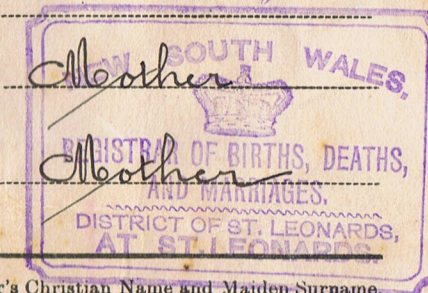 NEW SOUTH WALES,
Mother
REGISTRAR OF BIRTHS, DEATHS,
Mother
AND MARRIAGES.
DISTRICT OF ST. LEONARDS,
AT ST. LEONARDS.
r's Christian Name and Maiden Surname